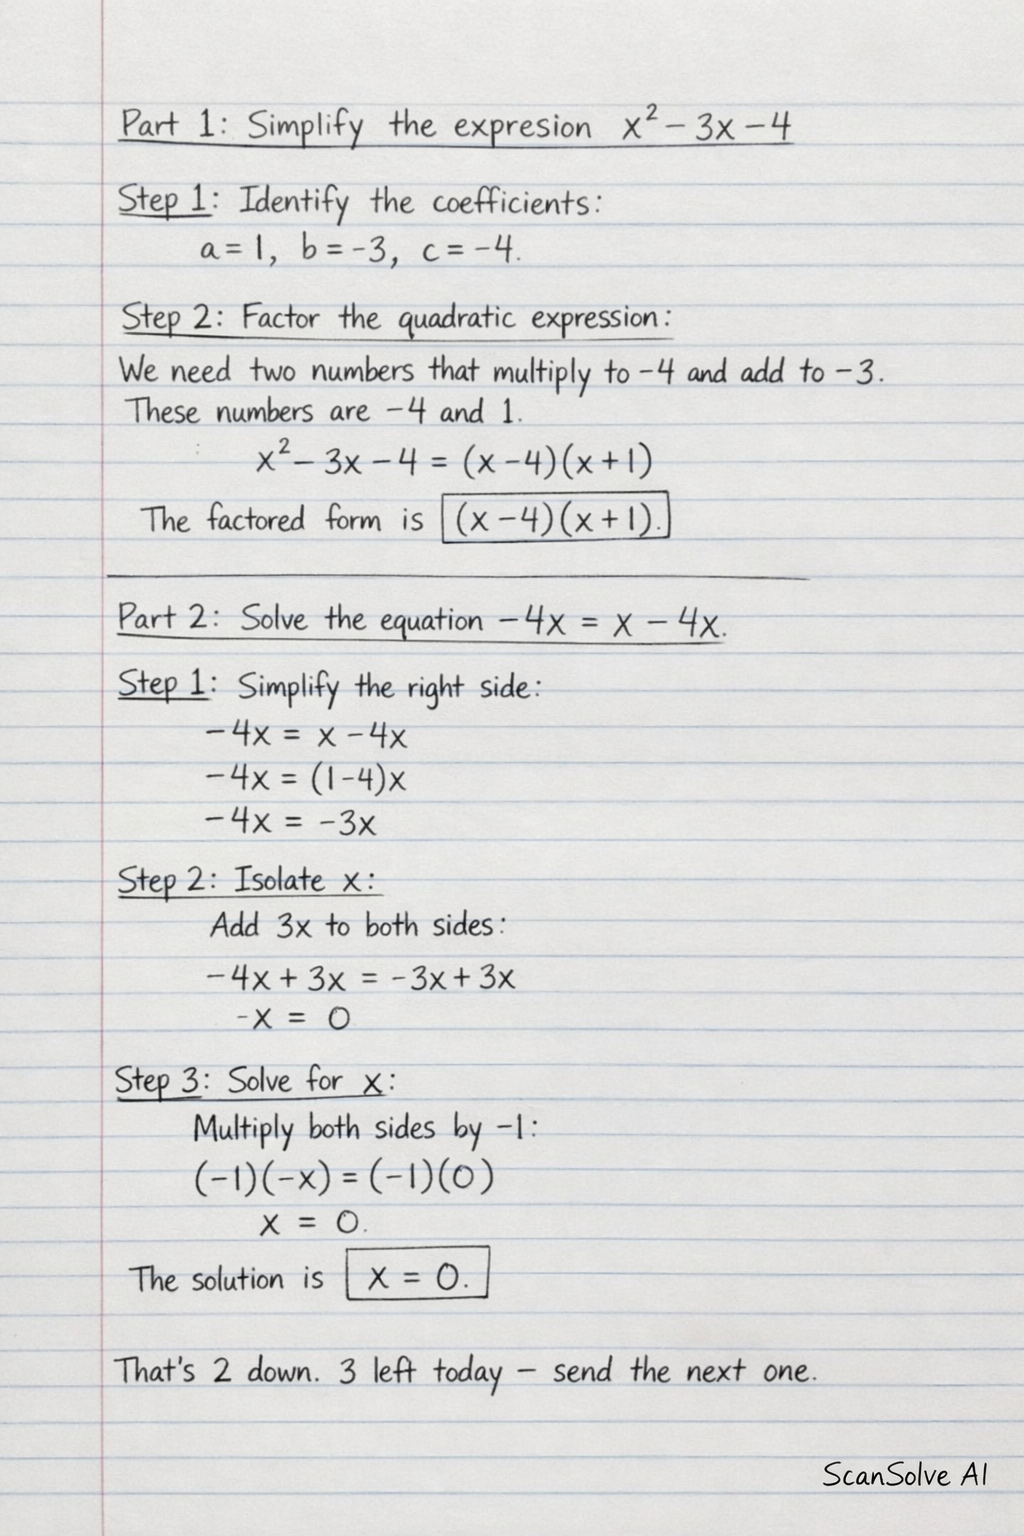 Part 1: Simplify the expresion x² − 3x − 4
Step 1: Identify the coefficients:
a = 1, b = -3, c = -4.
Step 2: Factor the quadratic expression:
We need two numbers that multiply to −4 and add to −3.
These numbers are −4 and 1.
x² − 3x − 4 = (x − 4)(x + 1)
The factored form is (x − 4)(x + 1).
Part 2: Solve the equation −4x = x − 4x.
Step 1: Simplify the right side:
−4x = x − 4x
−4x = (1−4)x
−4x = −3x
Step 2: Isolate x:
Add 3x to both sides:
−4x + 3x = −3x + 3x
-x = 0
Step 3: Solve for x:
Multiply both sides by −1:
(−1)(−x) = (−1)(0)
x = 0.
The solution is x = 0.
That's 2 down. 3 left today − send the next one.
ScanSolve AI